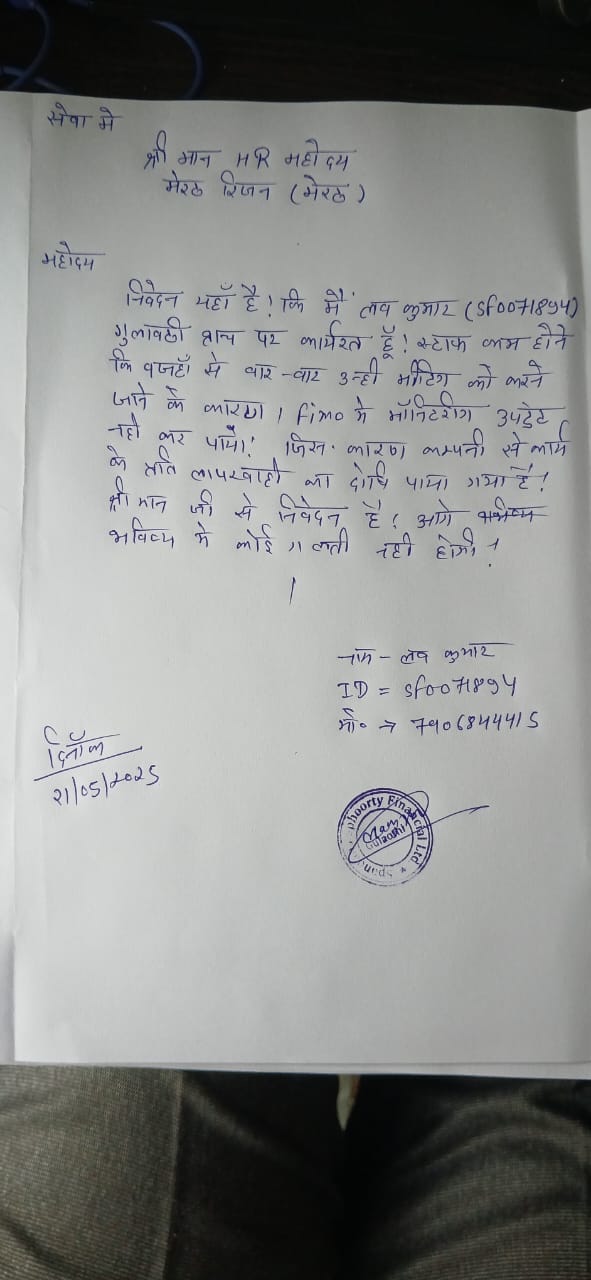 सेवा मे
श्री मान HR महोदय
मेरठ रिजन (मेरठ)
महोदय
निवेदन यहाँ है! कि मैं लव कुमार (Sf0071894)
गुलावठी ब्रान्च पर कार्यरत हूँ! स्टाफ कम होने
कि वजहाँ से वार-वार उन्ही मीटिग को करने
जाने के कारण। fimo मे मॉनिटरीग उपडेट
नही कर पाया! जिस कारण कम्पनी से कार्य
के प्रति लापरवाही का दोषि पाया गया है!
श्री मान जी से निवेदन है! आगे
भविष्य मे कोई गलती नही होगी!
।
नाम - लव कुमार
ID = Sf0071894
मो० → 7906844415
दिनाँक
21/05/2025
phoorty Financial Ltd
Gulaothi